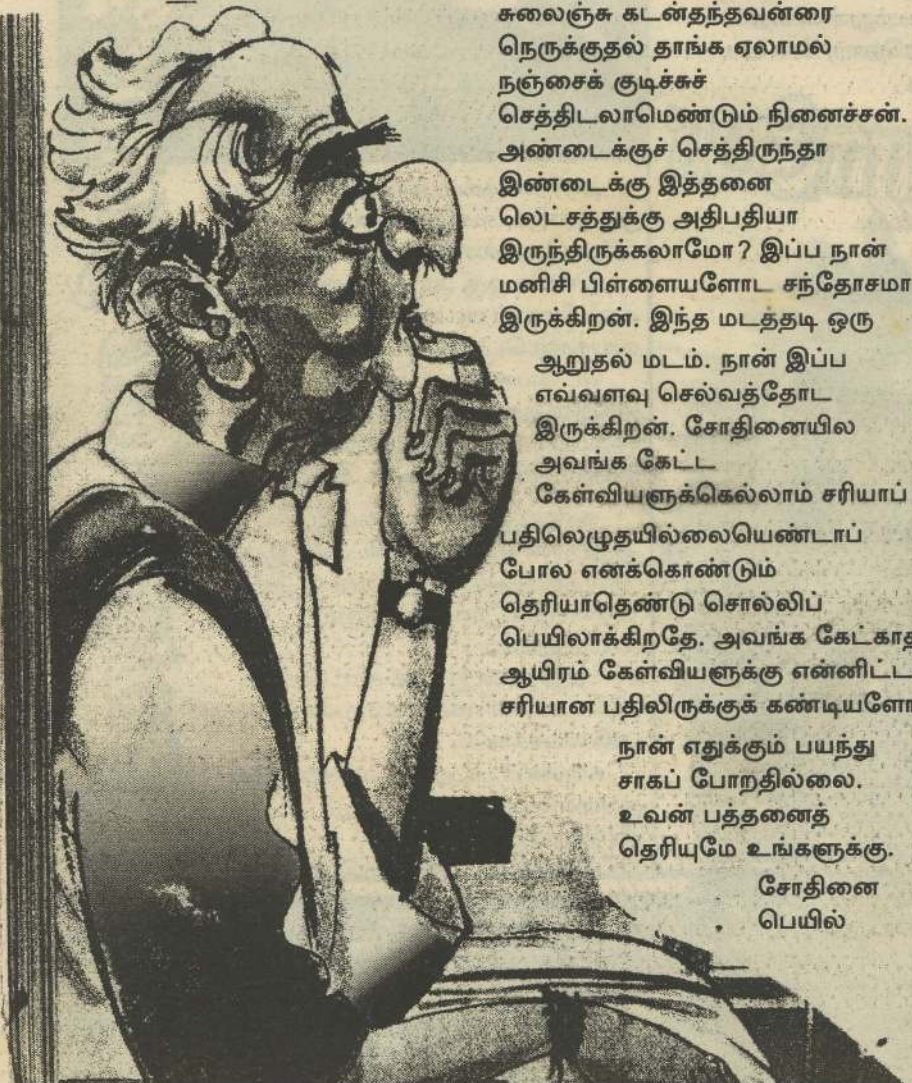 சுலைஞ்சு கடன்தந்தவன்ரை
நெருக்குதல் தாங்க ஏலாமல்
நஞ்சைக் குடிச்சுச்
செத்திடலாமெண்டும் நினைச்சன்.
அண்டைக்குச் செத்திருந்தா
இண்டைக்கு இத்தனை
லெட்சத்துக்கு அதிபதியா
இருந்திருக்கலாமோ? இப்ப நான்
மனிசி பிள்ளையளோட சந்தோசமா
இருக்கிறன். இந்த மடத்தடி ஒரு
ஆறுதல் மடம். நான் இப்ப
எவ்வளவு செல்வத்தோட
இருக்கிறன். சோதினையில
அவங்க கேட்ட
கேள்வியளுக்கெல்லாம் சரியாப்
பதிலெழுதயில்லையெண்டாப்
போல எனக்கொண்டும்
தெரியாதெண்டு சொல்லிப்
பெயிலாக்கிறதே. அவங்க கேட்காத
ஆயிரம் கேள்வியளுக்கு என்னிட்ட
சரியான பதிலிருக்குக் கண்டியளோ
நான் எதுக்கும் பயந்து
சாகப் போறதில்லை.
உவன் பத்தனைத்
தெரியுமே உங்களுக்கு.
சோதினை
பெயில்